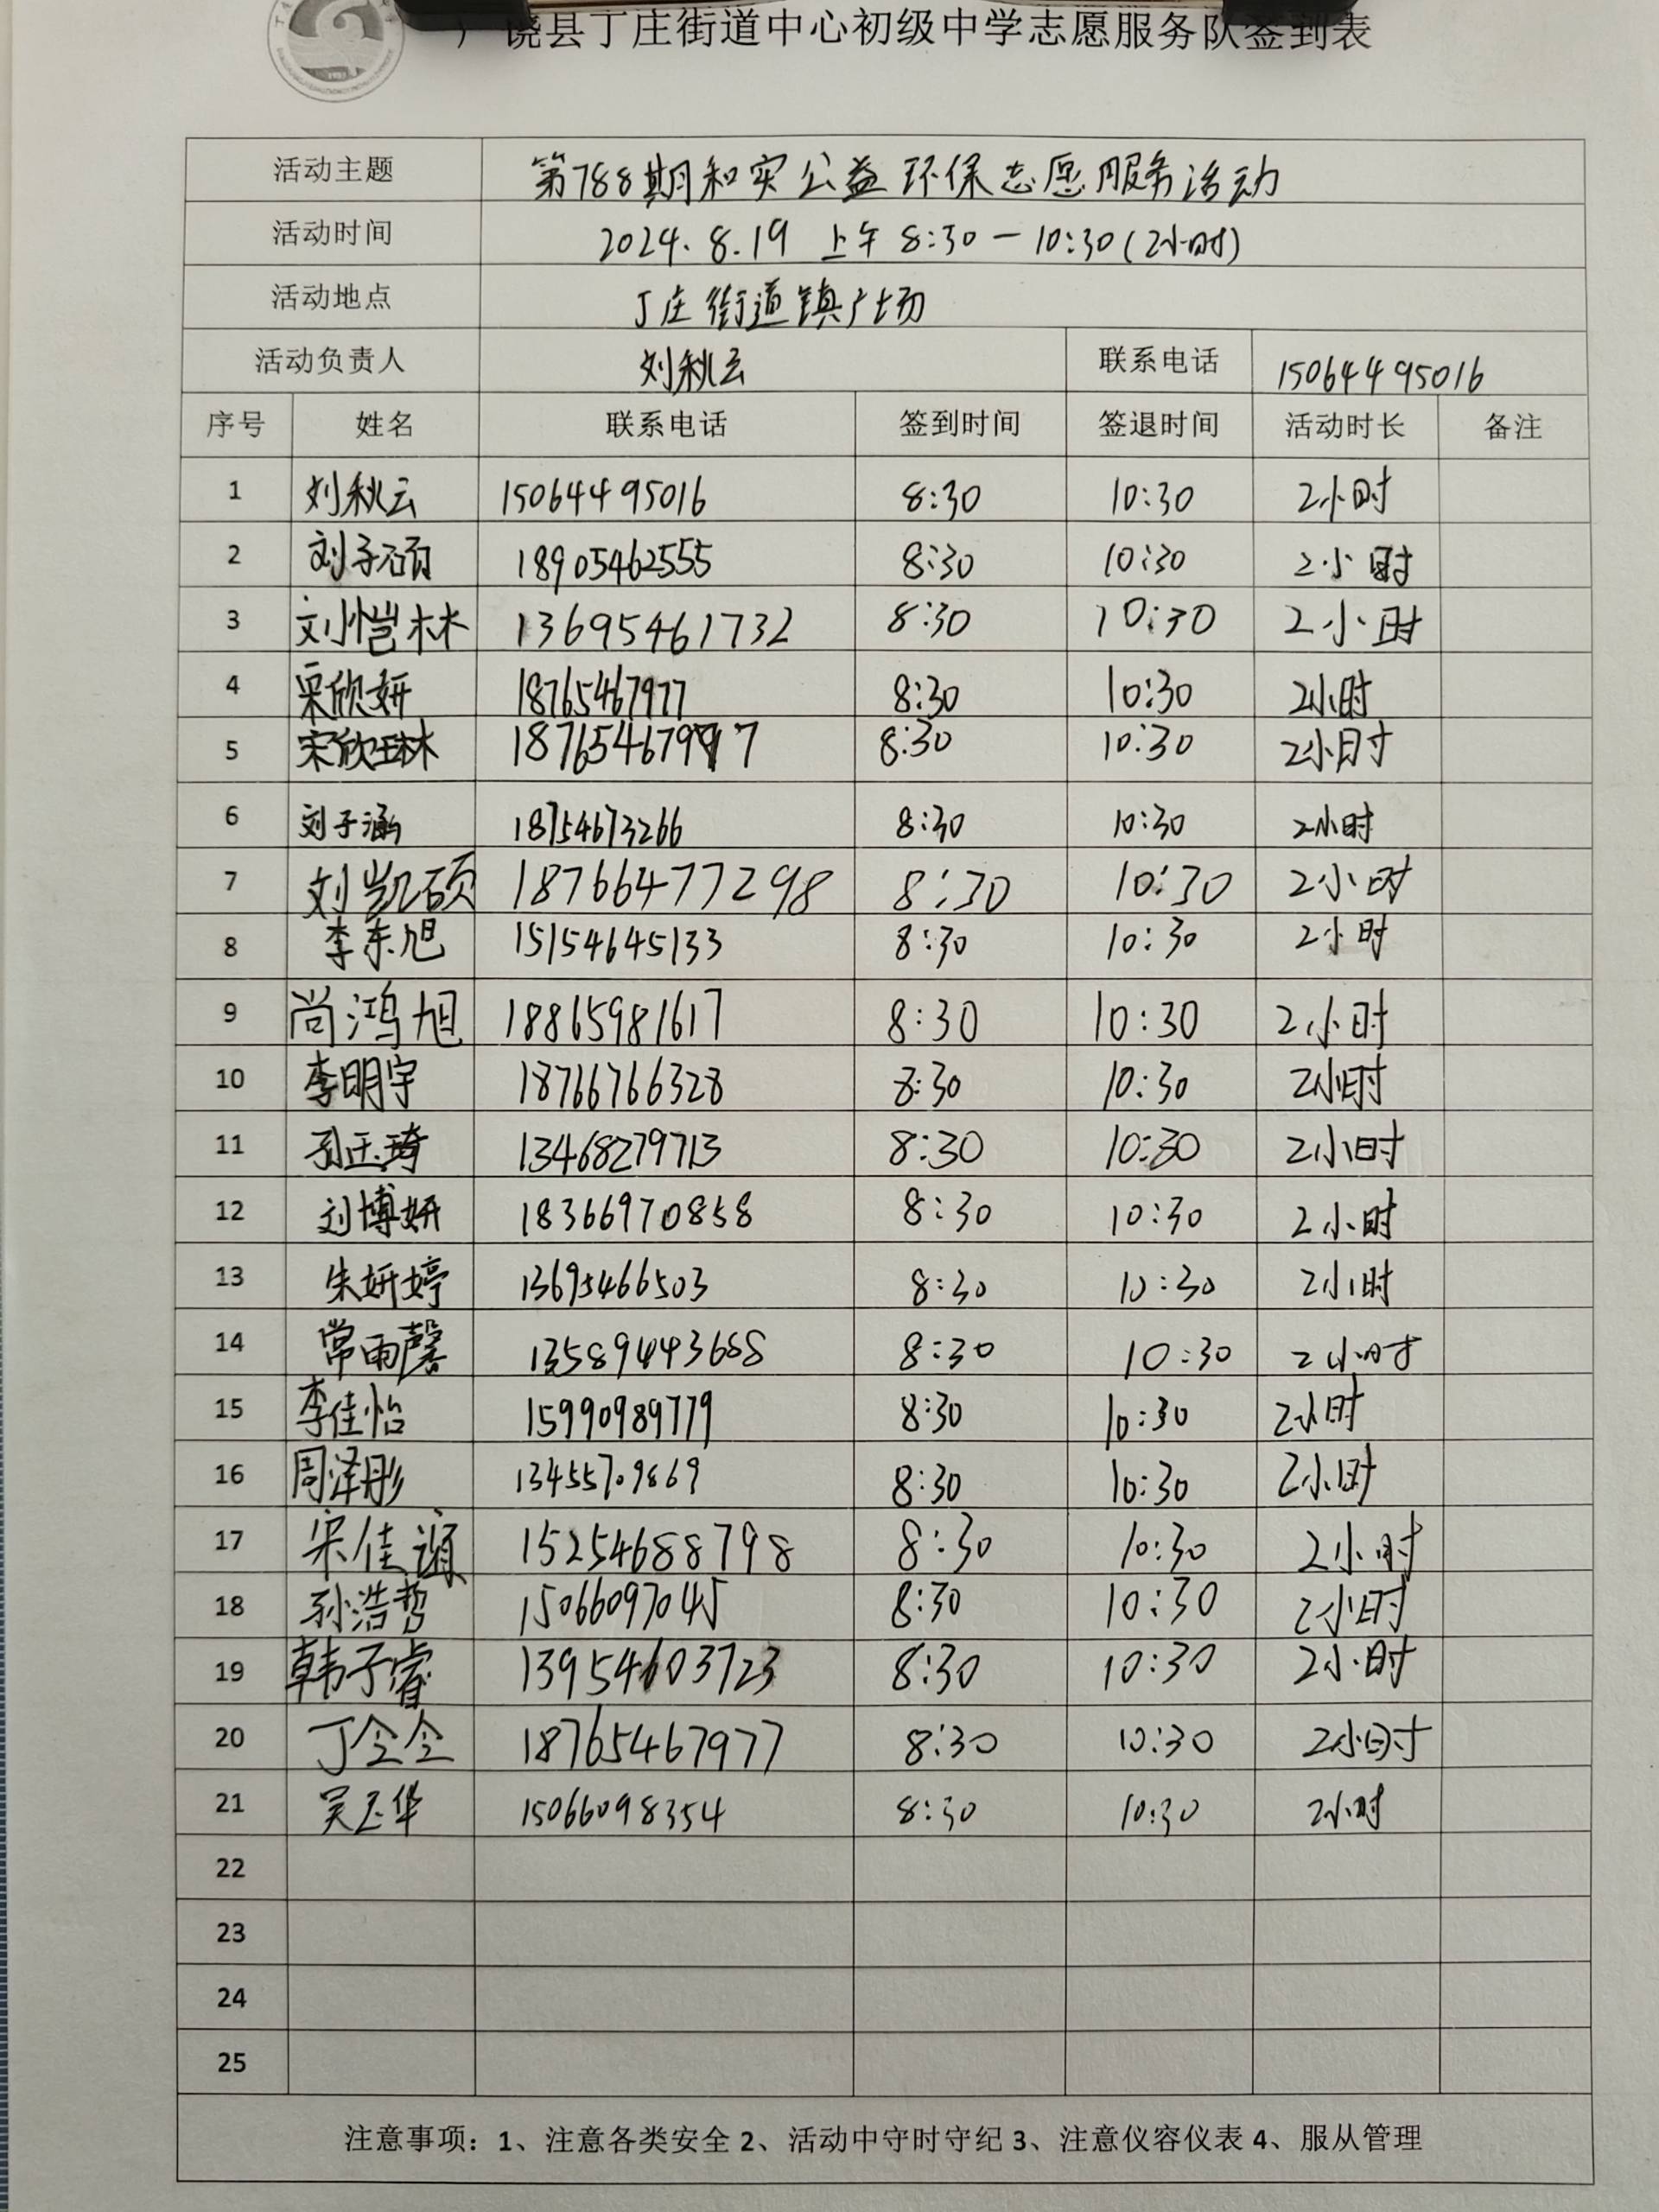 广饶县丁庄街道中心初级中学志愿服务队签到表
活动主题 第788期和实公益环保志愿服务活动
活动时间 2024.8.19 上午 8:30-10:30(2小时)
活动地点 丁庄街道镇广场
活动负责人 刘秋云 联系电话 15064495016
序号 姓名 联系电话 签到时间 签退时间 活动时长 备注
1 刘秋云 15064495016 8:30 10:30 2小时
2 刘子硕 18905462555 8:30 10:30 2小时
3 刘恺林 13695461732 8:30 10:30 2小时
4 宋欣妍 18765467977 8:30 10:30 2小时
5 宋欣琳 18765467977 8:30 10:30 2小时
6 刘子涵 18754673266 8:30 10:30 2小时
7 刘凯硕 18766477298 8:30 10:30 2小时
8 李东旭 15154645133 8:30 10:30 2小时
9 尚鸿旭 18865981617 8:30 10:30 2小时
10 李明宇 18766766328 8:30 10:30 2小时
11 孙玉琦 13468279713 8:30 10:30 2小时
12 刘博妍 18366970858 8:30 10:30 2小时
13 朱妍婷 13695466503 8:30 10:30 2小时
14 常雨馨 13589443688 8:30 10:30 2小时
15 李佳怡 15990989779 8:30 10:30 2小时
16 周泽彤 13455709869 8:30 10:30 2小时
17 宋佳 15254688798 8:30 10:30 2小时
18 孙浩哲 15066097045 8:30 10:30 2小时
19 韩子睿 13954603723 8:30 10:30 2小时
20 丁全全 18765467977 8:30 10:30 2小时
21 吴玉华 15066098354 8:30 10:30 2小时
22
23
24
25
注意事项：1、注意各类安全 2、活动中守时守纪 3、注意仪容仪表 4、服从管理